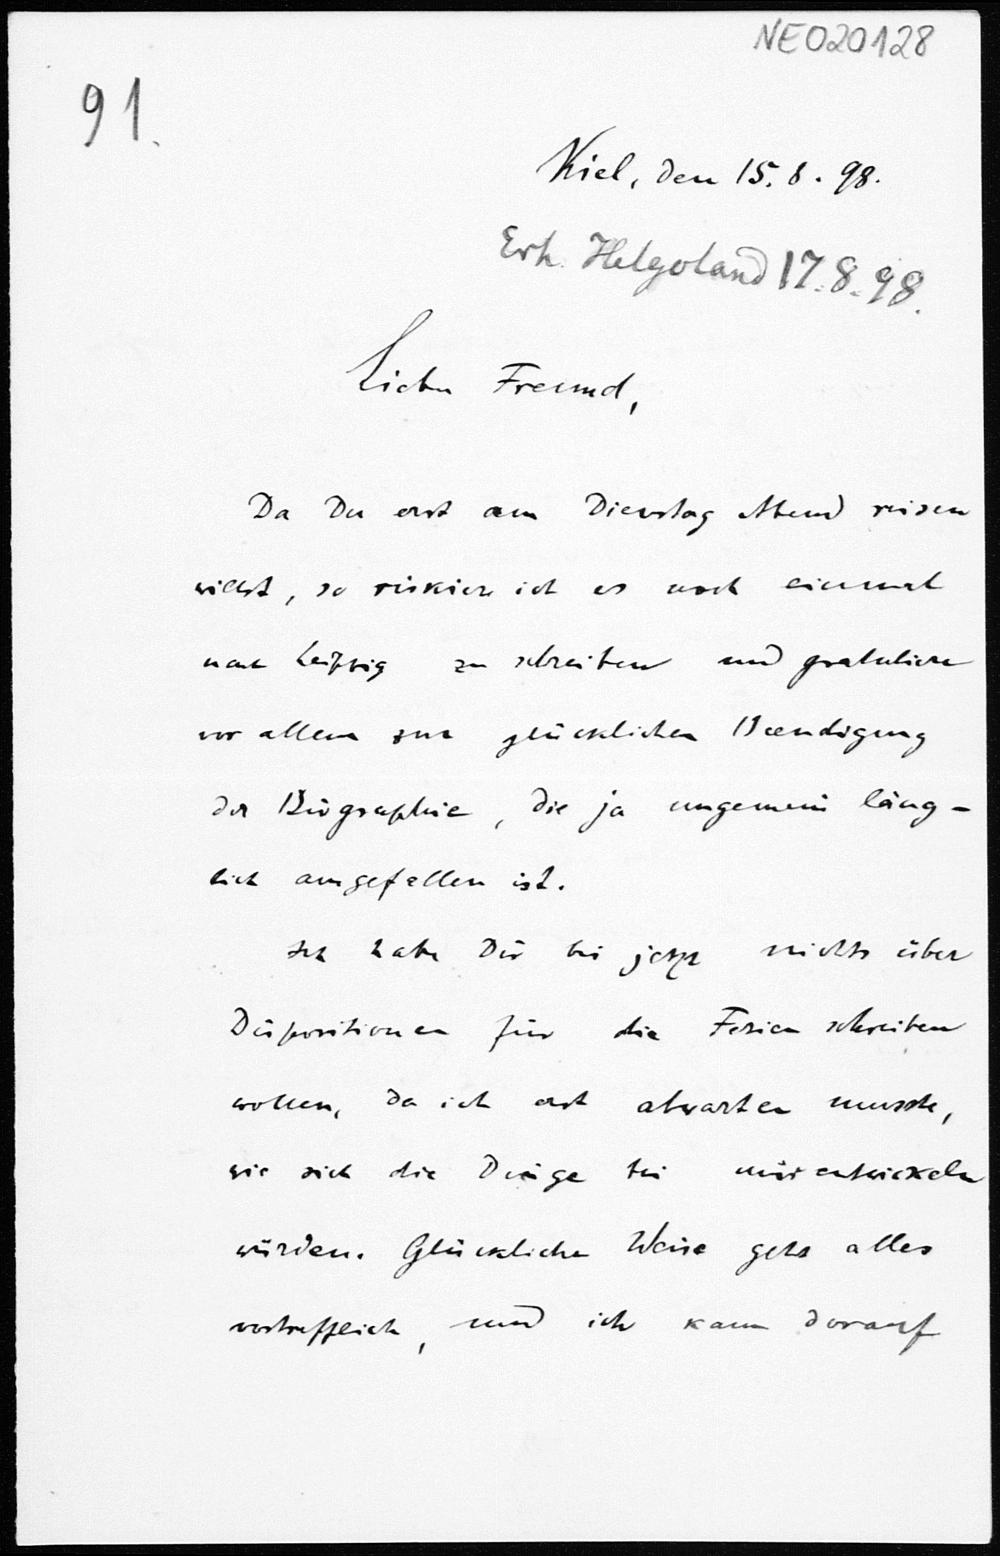 NE020128
91.
Kiel, den 15. 8. 98.
Erh. Helgoland 17.8.98.
Lieber Freund,
Da Du erst am Dienstag Abend reisen
willst, so riskiere ich es noch einmal
nach Leipzig zu schreiben und gratuliere
vor allem zur glücklichen Beendigung
der Biographie, die ja ungemein läng-
lich ausgefallen ist.
Ich habe Dir bis jetzt nichts über
Dispositionen für die Ferien schreiben
wollen, da ich erst abwarten musste,
wie sich die Dinge bei mir entwickeln
würden. Glücklicher Weise geht alles
vortrefflich, und ich kann darauf